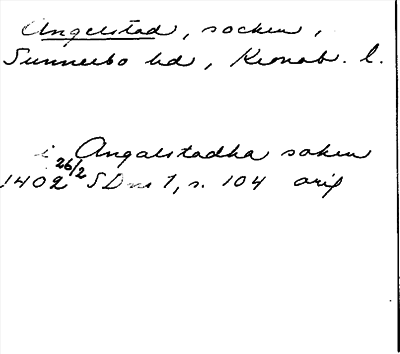 Angelstad, socken,
Sunnerbo hd, Kronob. l.
i Angalstadha sokn
1402 26/2 SDns 1, s. 104 orig